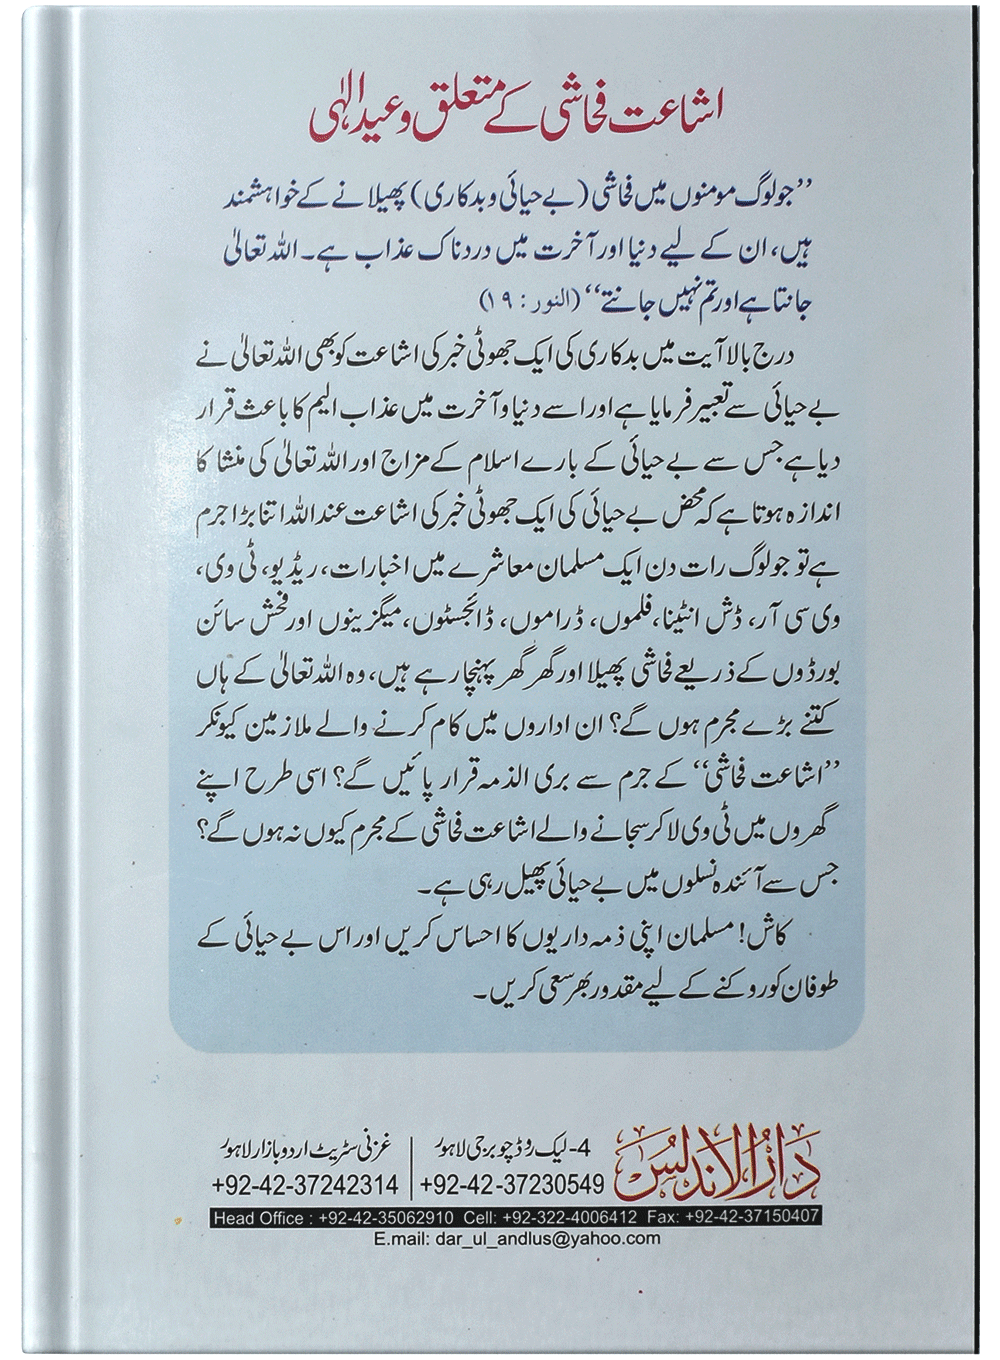 اشاعت فحاشی کے متعلق وعید الٰہی
’’جو لوگ مومنوں میں فحاشی (بے حیائی و بدکاری) پھیلانے کے خواہشمند
ہیں، ان کے لیے دنیا اور آخرت میں دردناک عذاب ہے۔ اللہ تعالیٰ
جانتا ہے اور تم نہیں جانتے‘‘ (النور : ۱۹)
درج بالا آیت میں بدکاری کی ایک جھوٹی خبر کی اشاعت کو بھی اللہ تعالیٰ نے
بے حیائی سے تعبیر فرمایا ہے اور اسے دنیا و آخرت میں عذاب الیم کا باعث قرار
دیا ہے جس سے بے حیائی کے بارے اسلام کے مزاج اور اللہ تعالیٰ کی منشا کا
اندازہ ہوتا ہے کہ محض بے حیائی کی ایک جھوٹی خبر کی اشاعت عند اللہ اتنا بڑا جرم
ہے تو جو لوگ رات دن ایک مسلمان معاشرے میں اخبارات، ریڈیو، ٹی وی،
وی سی آر، ڈش انٹینا، فلموں، ڈراموں، ڈائجسٹوں، میگزینوں اور فحش سائن
بورڈوں کے ذریعے فحاشی پھیلا اور گھر گھر پہنچا رہے ہیں، وہ اللہ تعالیٰ کے ہاں
کتنے بڑے مجرم ہوں گے؟ ان اداروں میں کام کرنے والے ملازمین کیونکر
’’اشاعت فحاشی‘‘ کے جرم سے بری الذمہ قرار پائیں گے؟ اسی طرح اپنے
گھروں میں ٹی وی لا کر سجانے والے اشاعت فحاشی کے مجرم کیوں نہ ہوں گے؟
جس سے آئندہ نسلوں میں بے حیائی پھیل رہی ہے۔
کاش! مسلمان اپنی ذمہ داریوں کا احساس کریں اور اس بے حیائی کے
طوفان کو روکنے کے لیے مقدور بھر سعی کریں۔
دارالاندلس
4- لیک روڈ چوبرجی لاہور
+92-42-37230549
غزنی سٹریٹ اردو بازار لاہور
+92-42-37242314
Head Office : +92-42-35062910 Cell: +92-322-4006412 Fax: +92-42-37150407
E.mail: dar_ul_andlus@yahoo.com